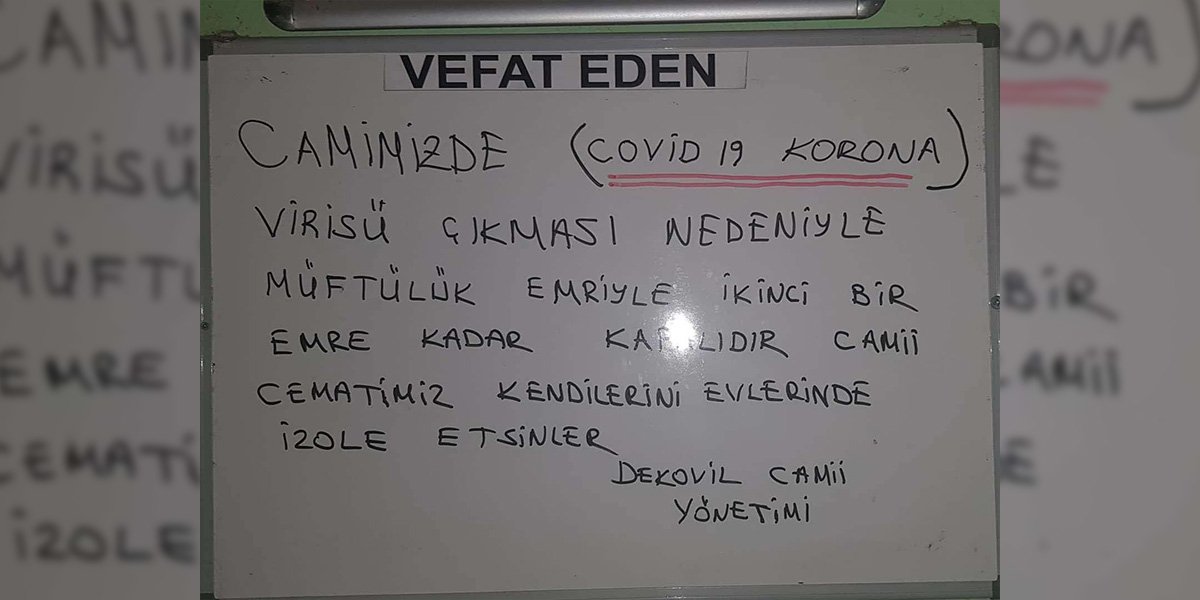 VEFAT EDEN
CAMİMİZDE (COVİD 19 KORONA)
VİRİSÜ ÇIKMASI NEDENİYLE
MÜFTÜLÜK EMRİYLE İKİNCİ BİR
EMRE KADAR KAPALIDIR CAMİİ
CEMATİMİZ KENDİLERİNİ EVLERİNDE
İZOLE ETSİNLER
DEKOVİL CAMİİ
YÖNETİMİ